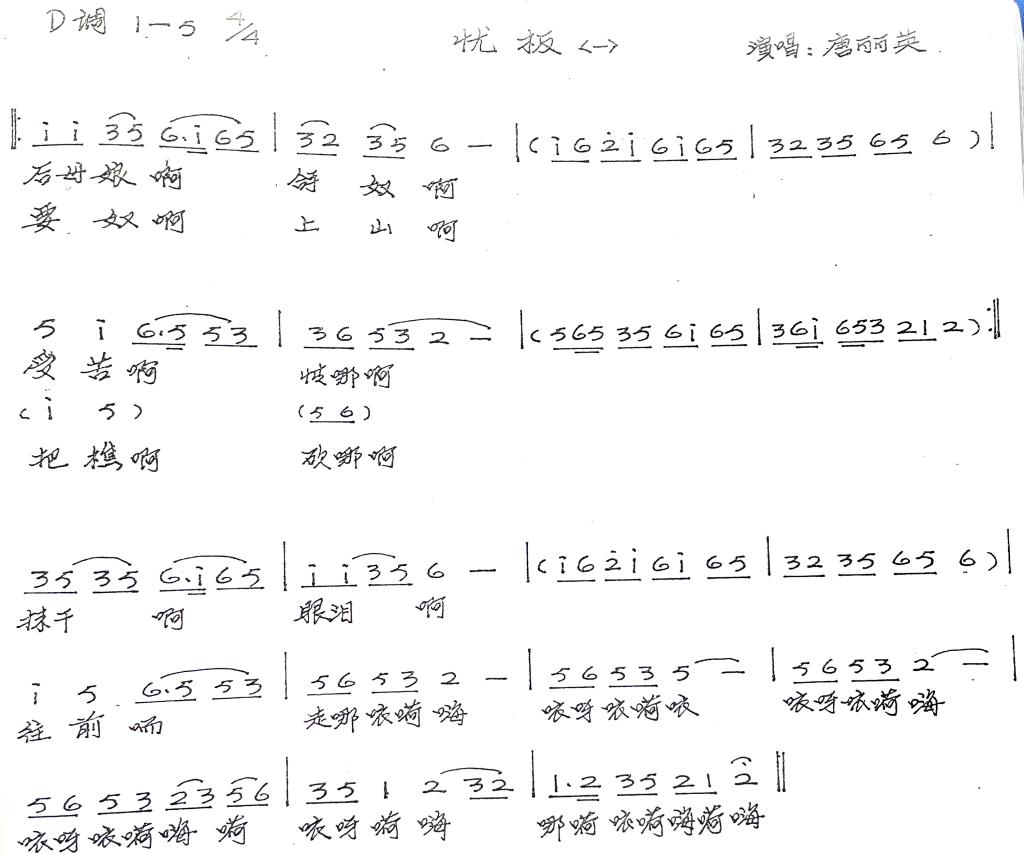 D调 1—5 4/4 忧板<一> 演唱:唐丽英
‖: i̇ i̇ 35 6.i̇ 65 | 32 35 6 — | (i̇6 2̇i̇ 6i̇ 65 | 32 35 65 6 ) |
后母娘啊 奴 啊
要 奴啊 上 山 啊
5 i̇ 6.5 53 | 36 53 2 — | (565 35 6i̇ 65 | 36i̇ 653 21 2) :‖
受苦啊 哪啊
(i̇ 5) (56)
把樵啊 砍哪啊
35 35 6.i̇ 65 | i̇ i̇ 35 6 — | (i̇6 2̇i̇ 6i̇ 65 | 32 35 65 6 ) |
抹干 啊 眼泪 啊
i̇ 5 6.5 53 | 56 53 2 — | 56 53 5 — | 56 53 2 — |
往前 走哪 咳嗬嗨 咳呀咳嗬咳 咳呀咳嗬嗨
56 53 23 56 | 35 1 2 32 | 1.2 35 21 2̇ ‖
咳呀咳嗬嗨 嗬 咳呀嗬 嗨 哪嗬 咳嗬嗨嗬嗨